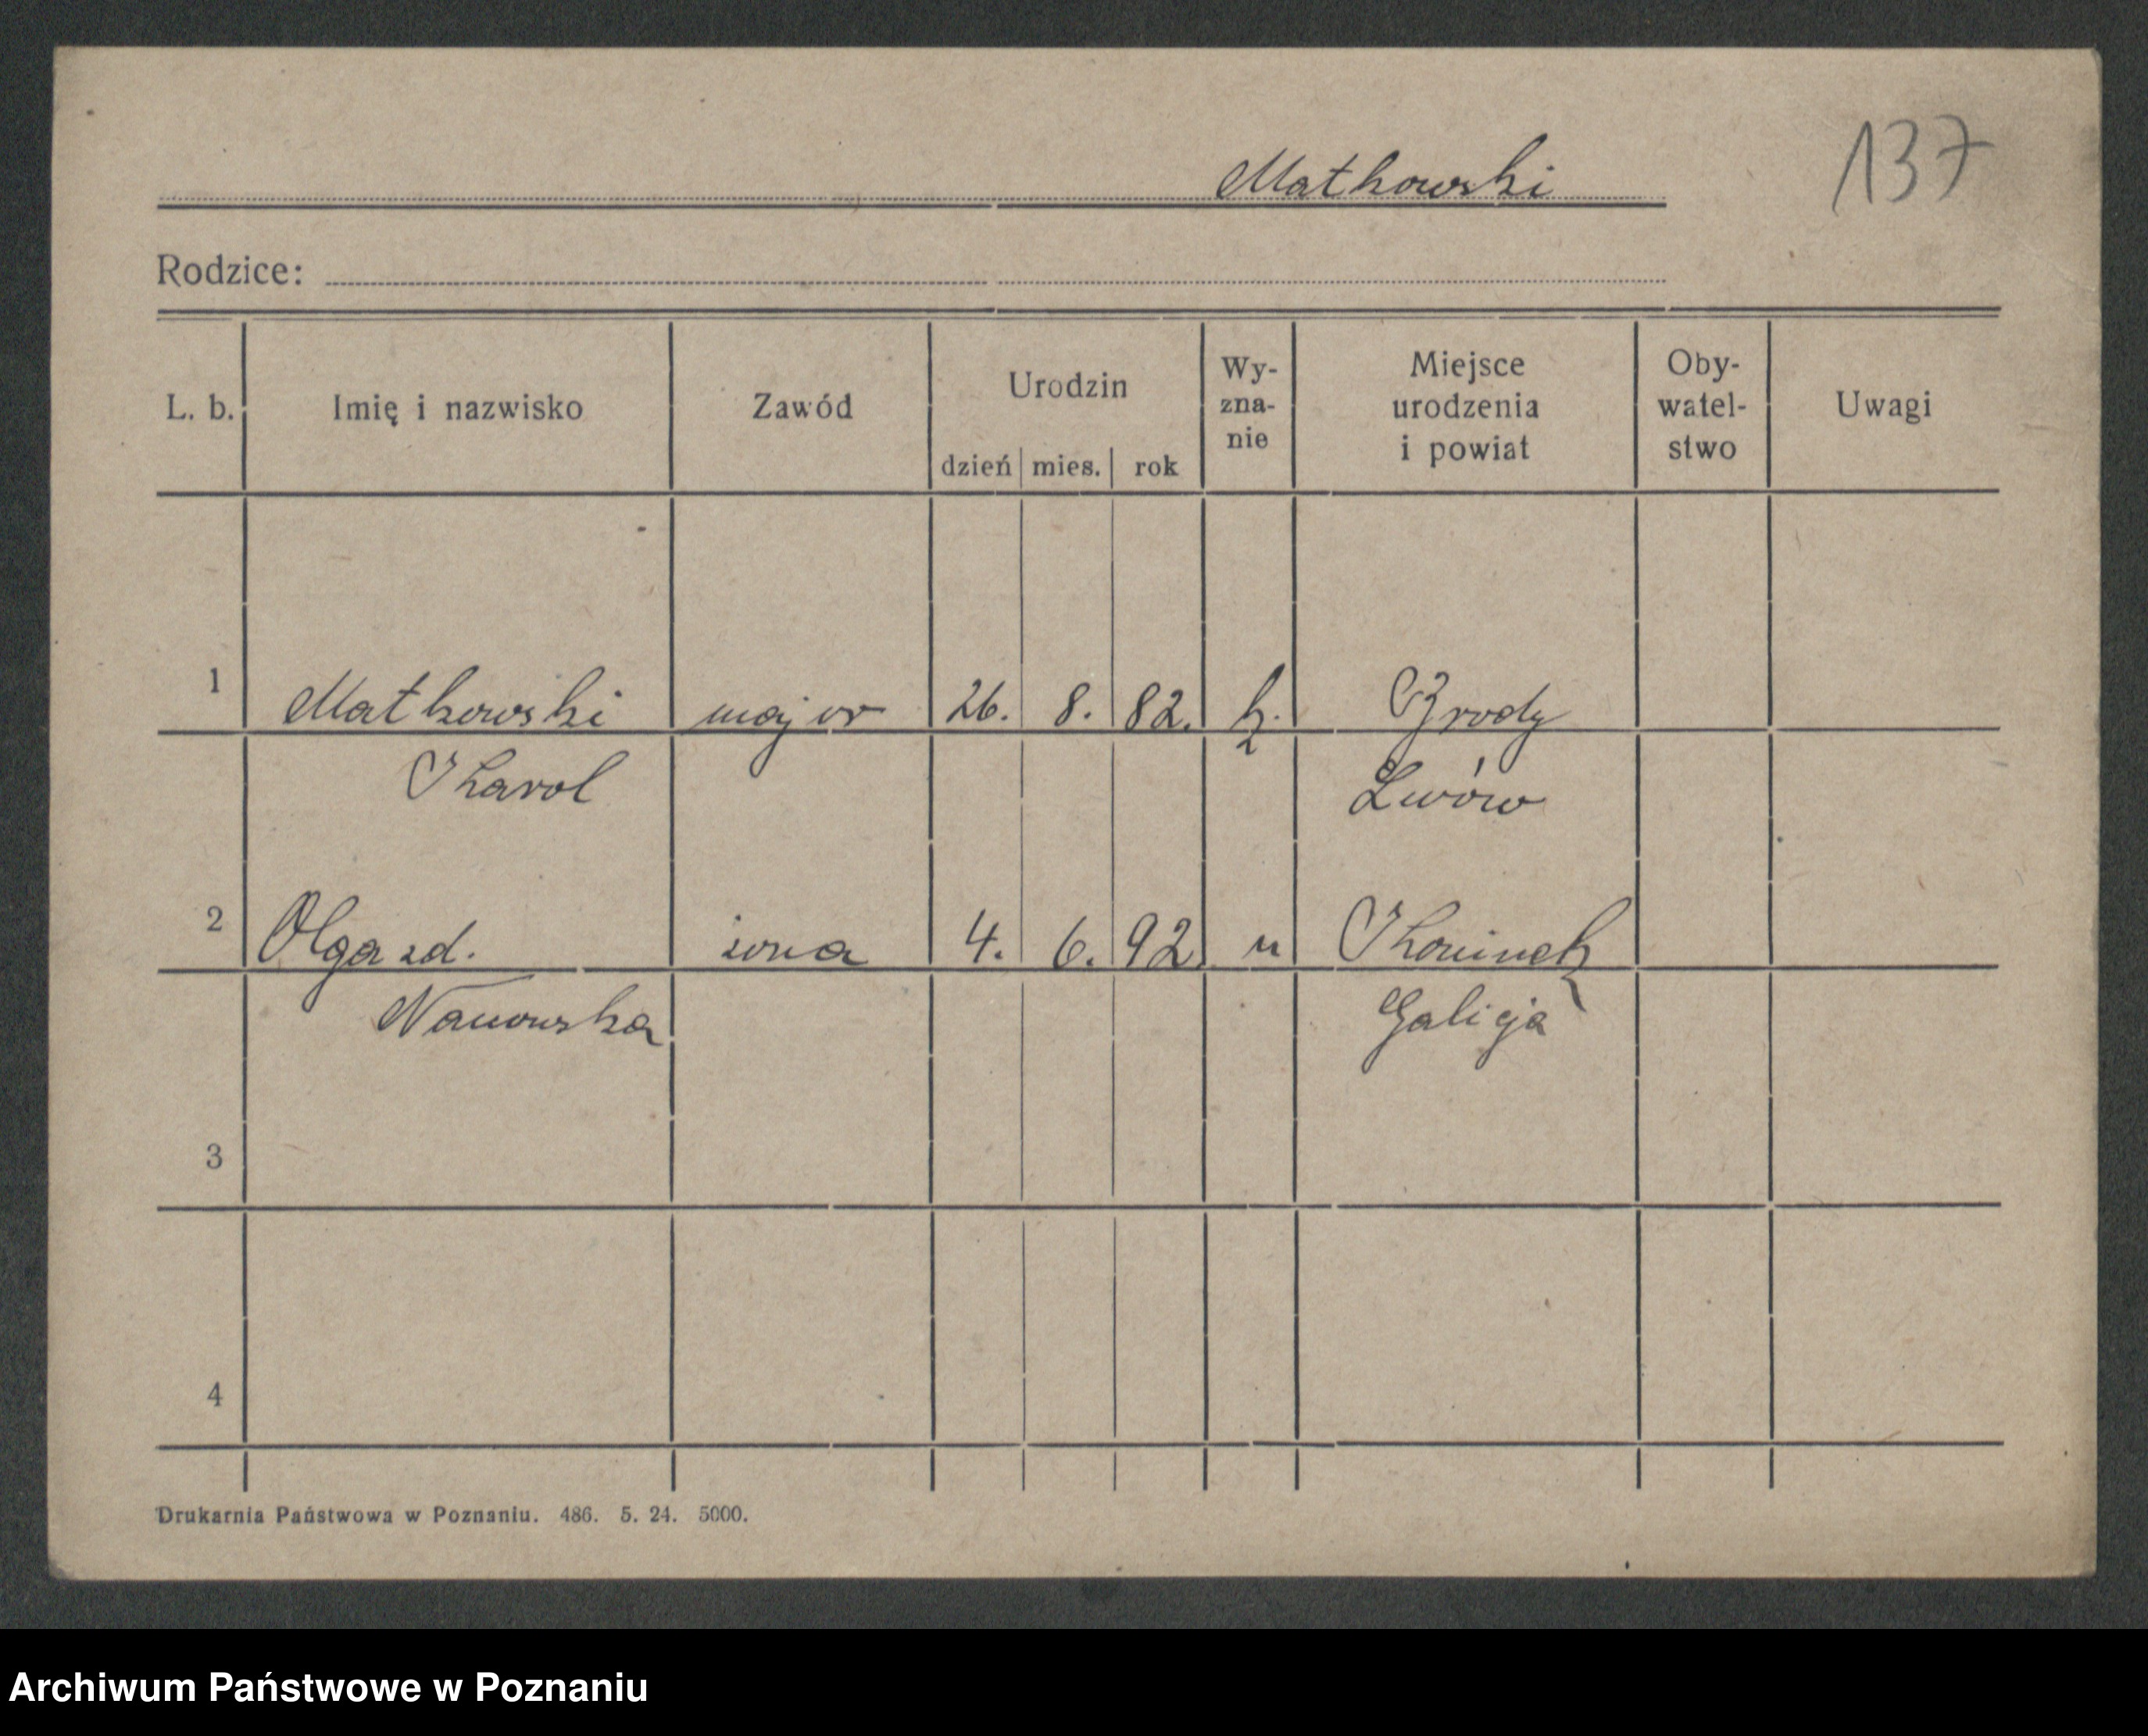 Matkowski
137
Rodzice:
L. b. Imię i nazwisko Zawód Urodzin dzień mies. rok Wy-zna-nie Miejsce urodzenia i powiat Oby-watel-stwo Uwagi
1 Matkowski major 26. 8. 82. k. Brody
Karol Lwów
2 Olga zd. żona 4. 6. 92. "
Nanowska Galicja
3
4
Drukarnia Państwowa w Poznaniu. 486. 5. 24. 5000.
Archiwum Państwowe w Poznaniu